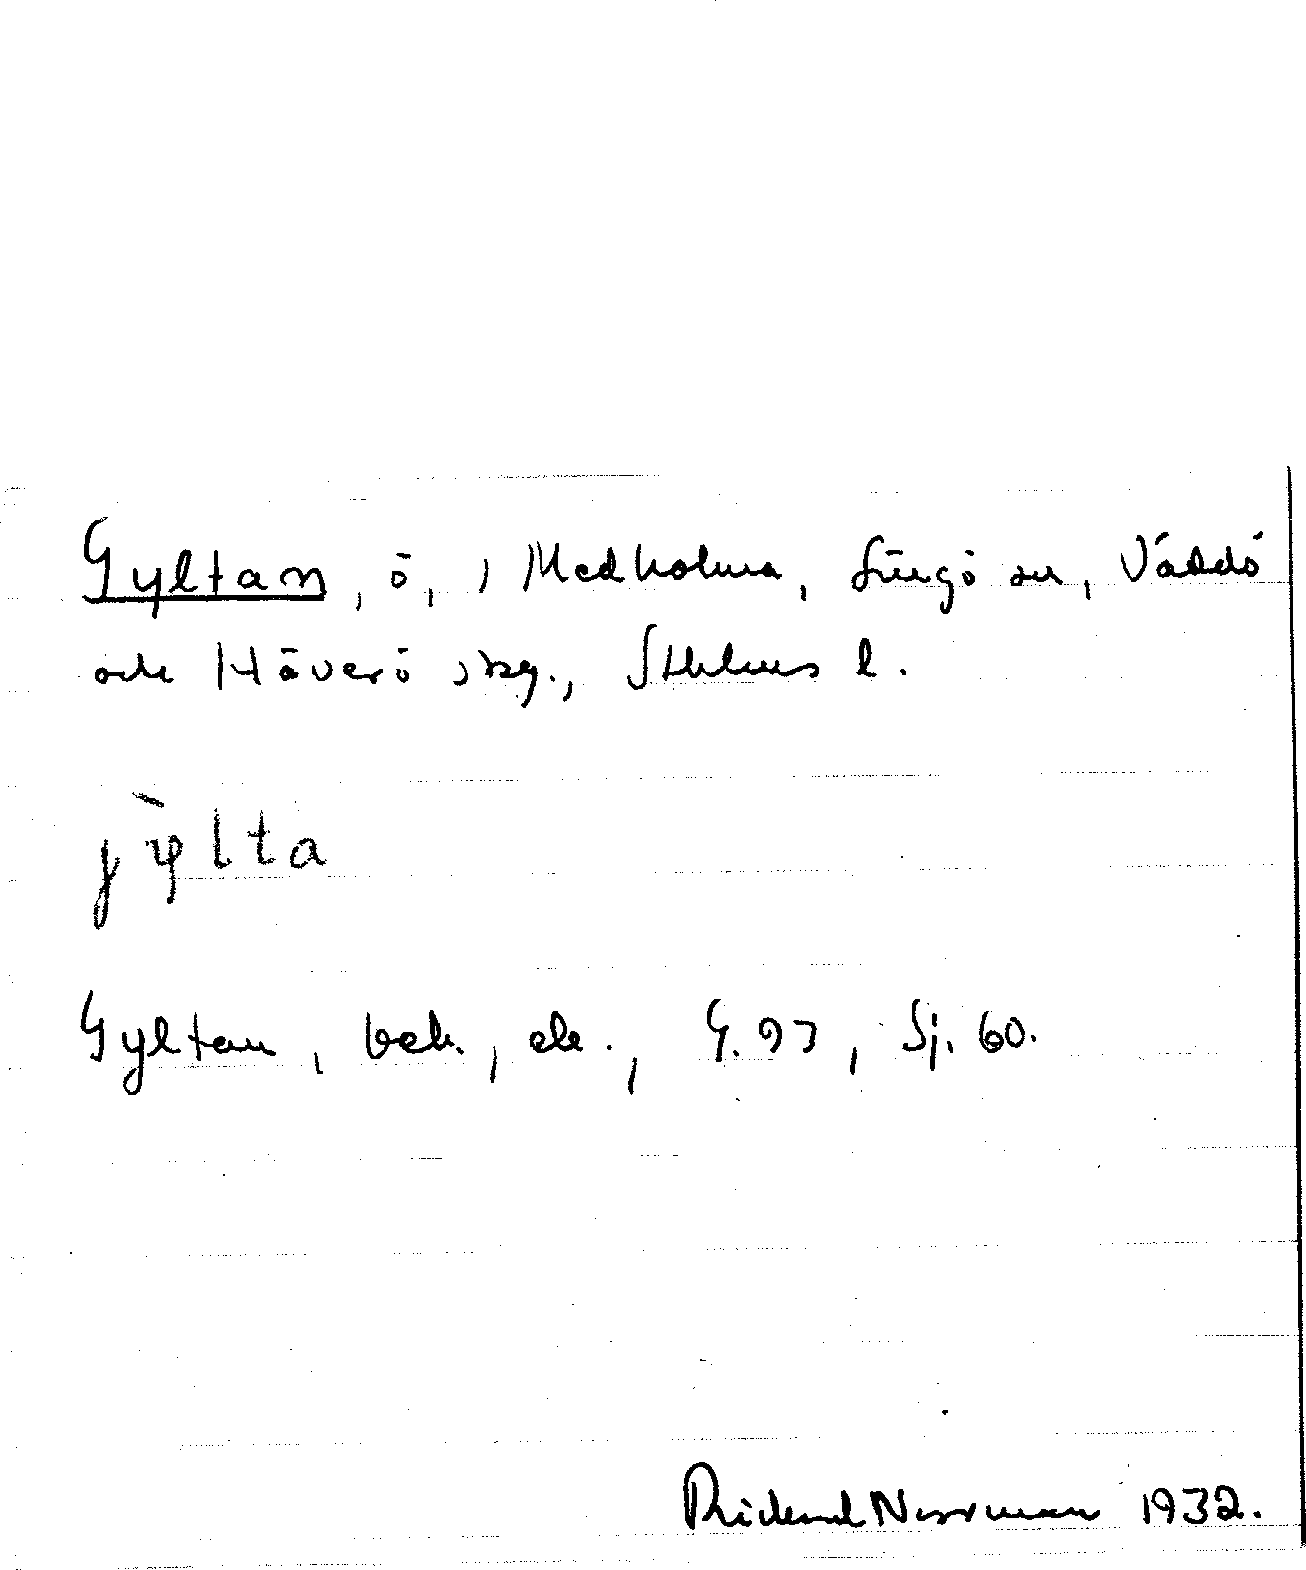 Gyltan, ö, i Medholma, Singö sn, Väddö
och Häverö skg., Sthlms l.
jỳlta
Gyltan, bek., ek., G. 93, Sj. 60.
Rickard Norrman 1932.